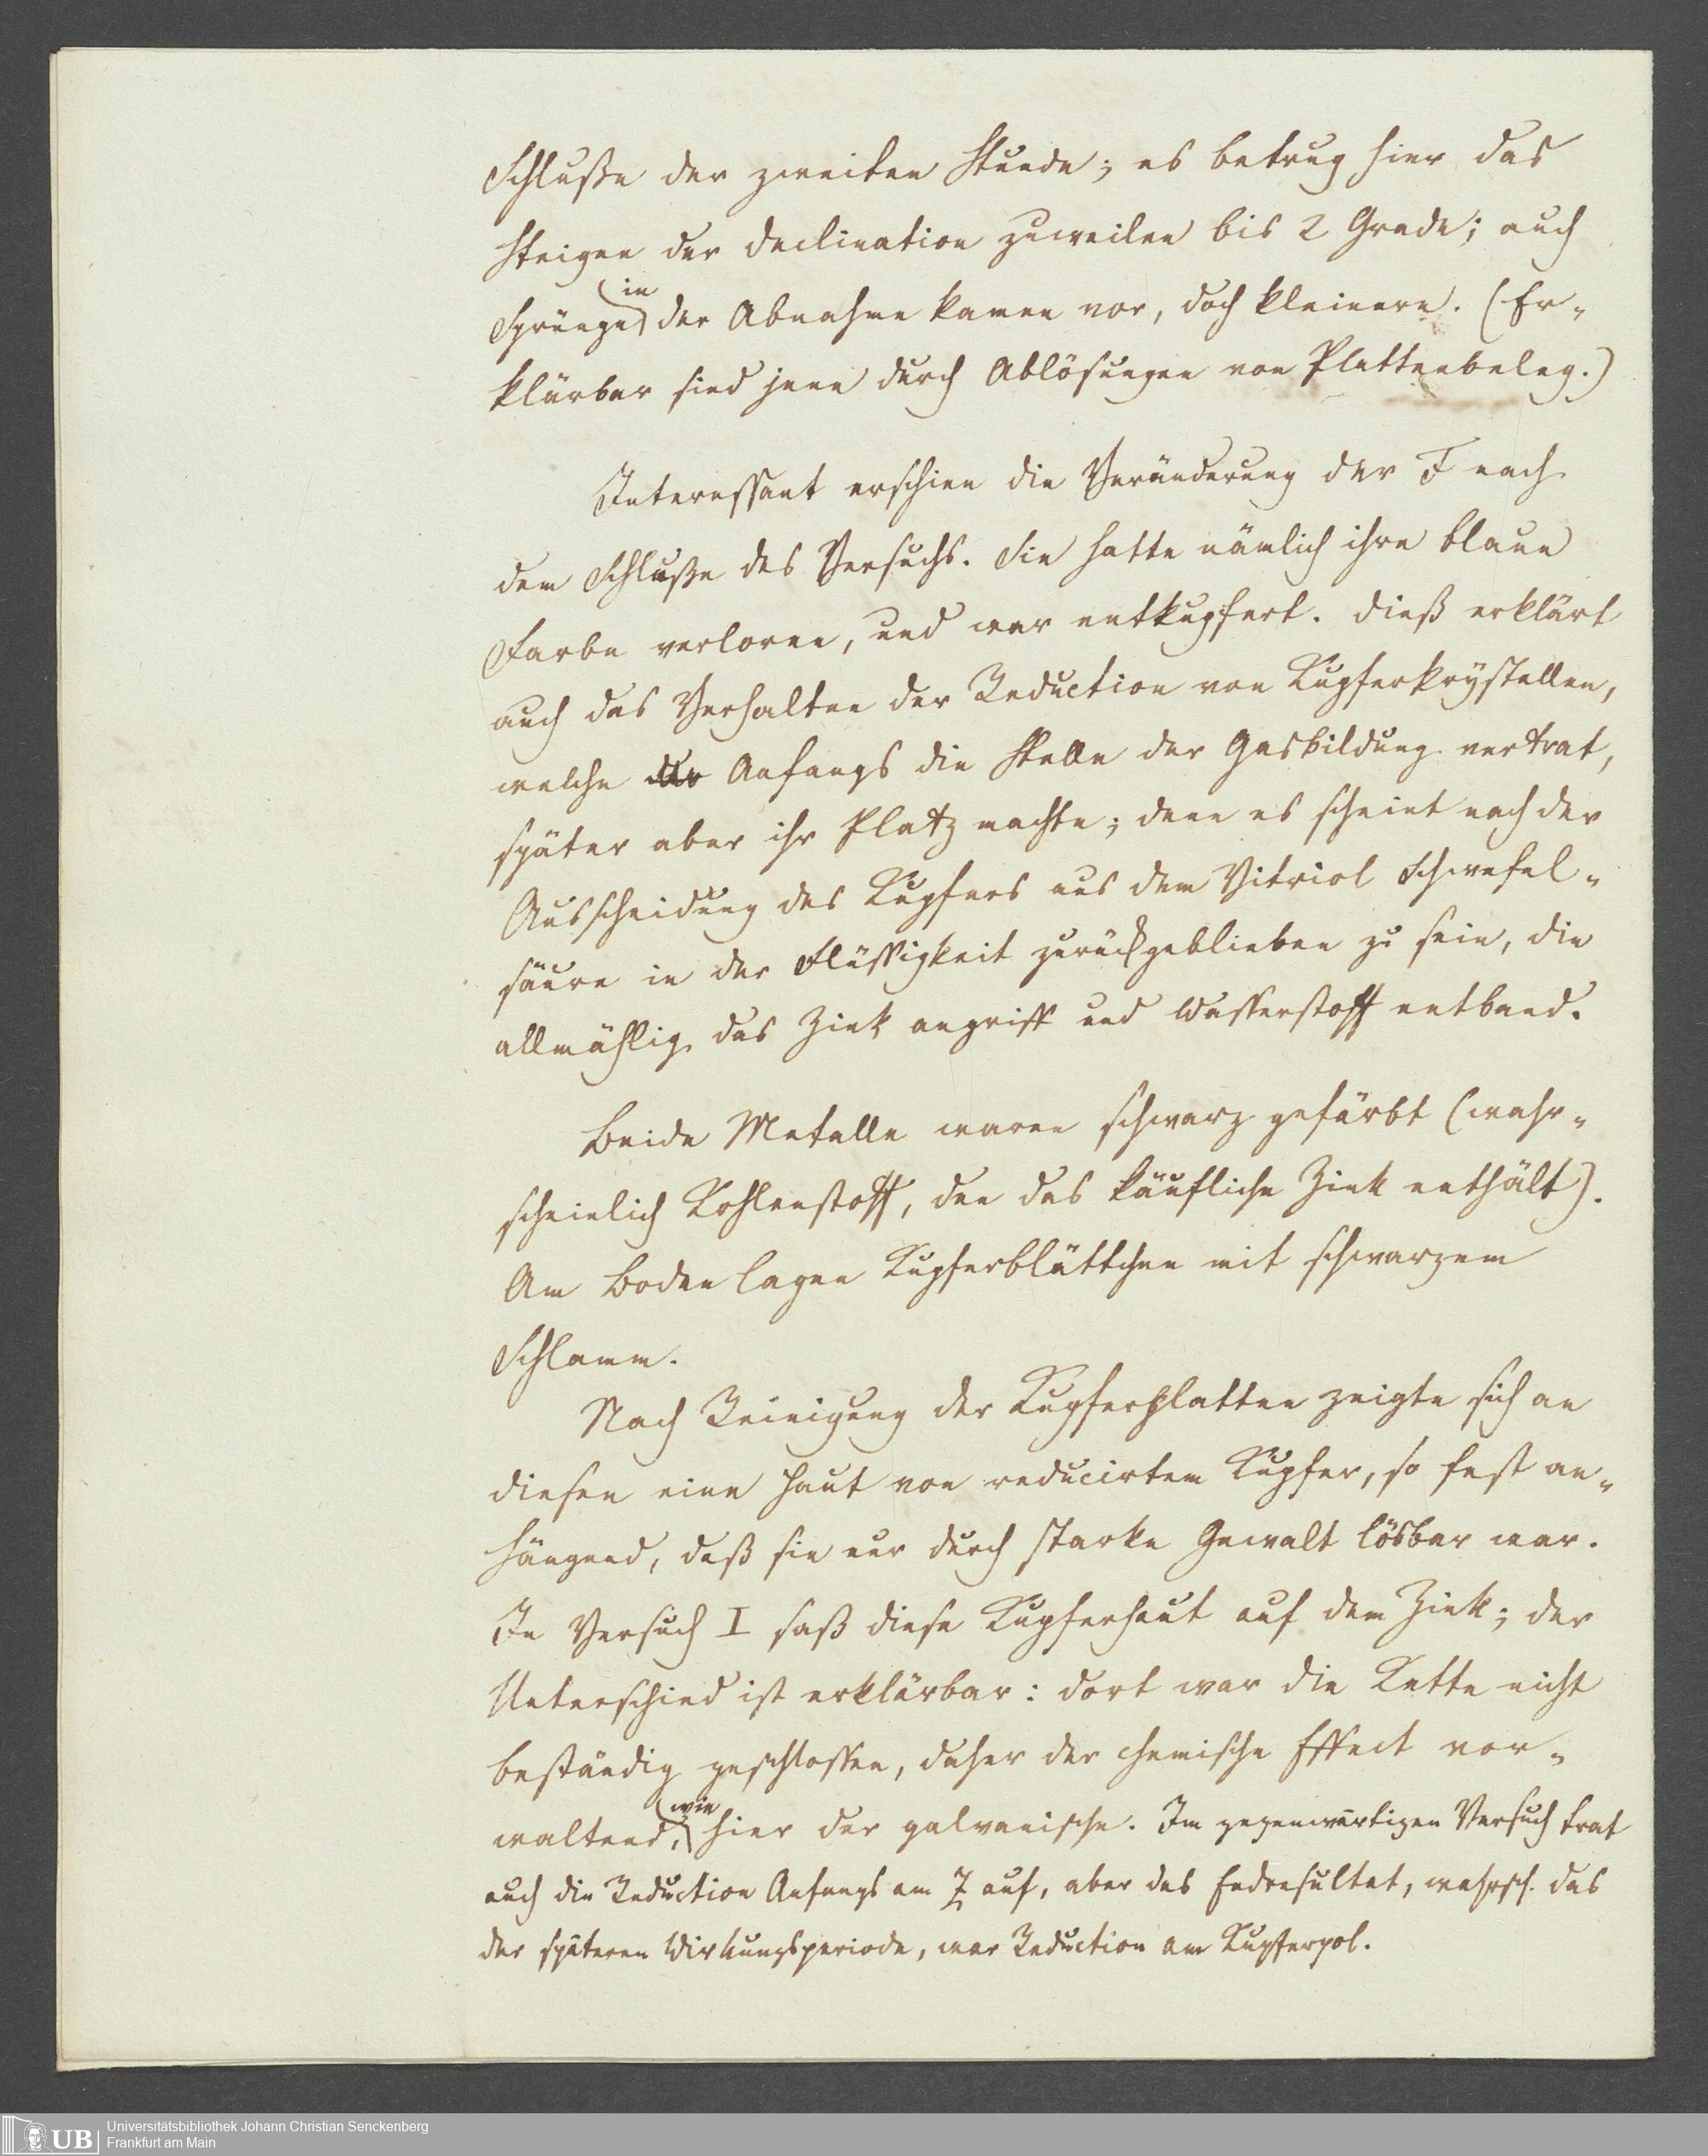 Schluße der zweiten Stunde; es betrug hier das
Steigen der Declination zuweilen bis 2 Grade; auch
Sprünge in der Abnahme kamen vor, doch kleinere. (Er-
klärbar sind jene durch Ablösungen von Plattenbeleg.)
Interessant erschien die Veränderung der F nach
dem Schluße des Versuchs. Sie hatte nämlich ihre blaue
Farbe verloren, und war entkupfert. Dieß erklärt
auch das Verhalten der Reduction von Kupferkrystallen,
welche der Anfangs die Stelle der Gasbildung vertrat,
später aber ihr Platz machte; denn es scheint nach der
Ausscheidung des Kupfers aus dem Vitriol Schwefel-
säure in der Flüssigkeit zurückgeblieben zu sein, die
allmählig das Zink angriff und Wasserstoff entband.
Beide Metalle waren schwarz gefärbt (wahr-
scheinlich Kohlenstoff, den das käufliche Zink enthält).
Am Boden lagen Kupferblättchen mit schwarzem
Schlamm.
Nach Reinigung der Kupferplatten zeigte sich an
diesen eine Haut von reducirtem Kupfer, so fest an-
hängend, daß sie nur durch starke Gewalt lösbar war.
In Versuch I saß diese Kupferhaut auf dem Zink; der
Unterschied ist erklärbar: dort war die Kette nicht
beständig geschlossen, daher der chemische Effect vor-
waltend, wie hier der galvanische. Im gegenwärtigen Versuch trat
auch die Reduction Anfangs am Z auf, aber das Endresultat, wahrsch. das
der späteren Wirkungsperiode, war Reduction am Kupferpol.
UB
Universitätsbibliothek Johann Christian Senckenberg
Frankfurt am Main